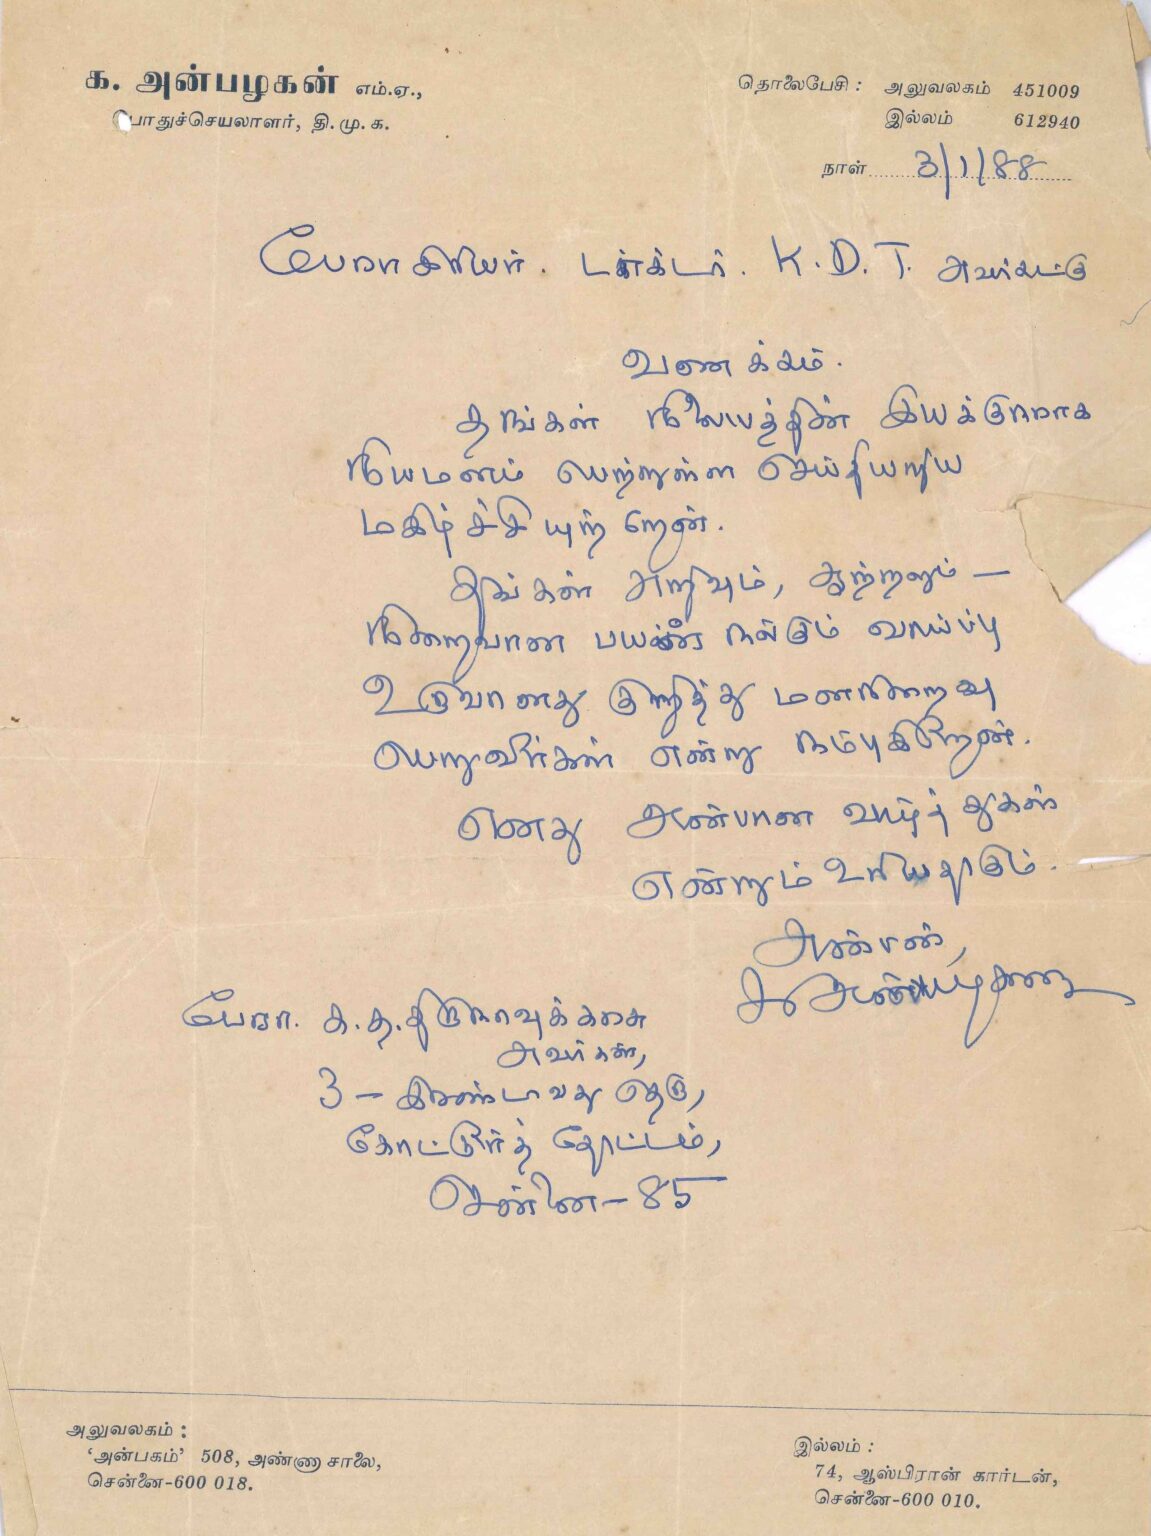 க. அன்பழகன் எம்.ஏ.,
பொதுச்செயலாளர், தி.மு.க.
தொலைபேசி : அலுவலகம் 451009
இல்லம் 612940
நாள் 3/1/88
பேராசிரியர். டாக்டர். K.D.T. அவர்கட்கு
வணக்கம்.
தாங்கள் நிலையத்தின் இயக்குநராக
நியமனம் பெற்றுள்ள செய்தியறிய
மகிழ்ச்சியுற்றேன்.
தங்கள் அறிவும், ஆற்றலும் –
நிறைவான பயன் நல்கும் வாய்ப்பு
உருவானது குறித்து மனநிறைவு
பெறுவீர்கள் என்று நம்புகிறேன்.
எனது அன்பான வாழ்த்துகள்
என்றும் உரியதாகும்.
அன்பன்,
க அன்பழகன்
பேரா. க.த.திருநாவுக்கரசு
அவர்கள்,
3 – இரண்டாவது தெரு,
கோட்டூர்த் தோட்டம்,
சென்னை – 85
அலுவலகம் :
'அன்பகம்' 508, அண்ணா சாலை,
சென்னை-600 018.
இல்லம் :
74, ஆஸ்பிரான் கார்டன்,
சென்னை-600 010.